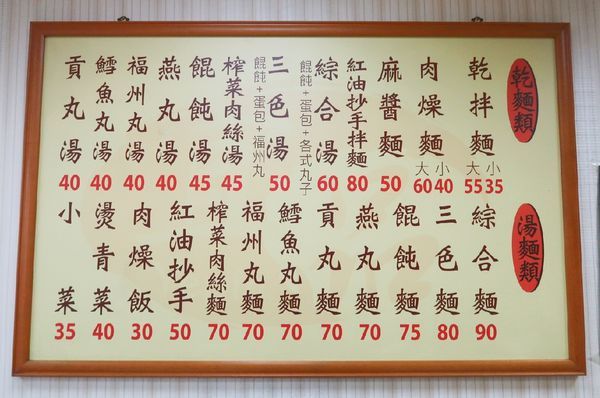 乾麵類
乾拌麵 大55 小35
肉燥麵 大60 小40
麻醬麵 50
紅油抄手拌麵 80
綜合湯 60
餛飩+蛋包+各式丸子
三色湯 50
餛飩+蛋包+福州丸
榨菜肉絲湯 45
餛飩湯 45
燕丸湯 40
福州丸湯 40
鱈魚丸湯 40
貢丸湯 40
湯麵類
綜合麵 90
三色麵 80
餛飩麵 75
燕丸麵 70
貢丸麵 70
鱈魚丸麵 70
福州丸麵 70
榨菜肉絲麵 70
紅油抄手 50
肉燥飯 30
燙青菜 40
小菜 35